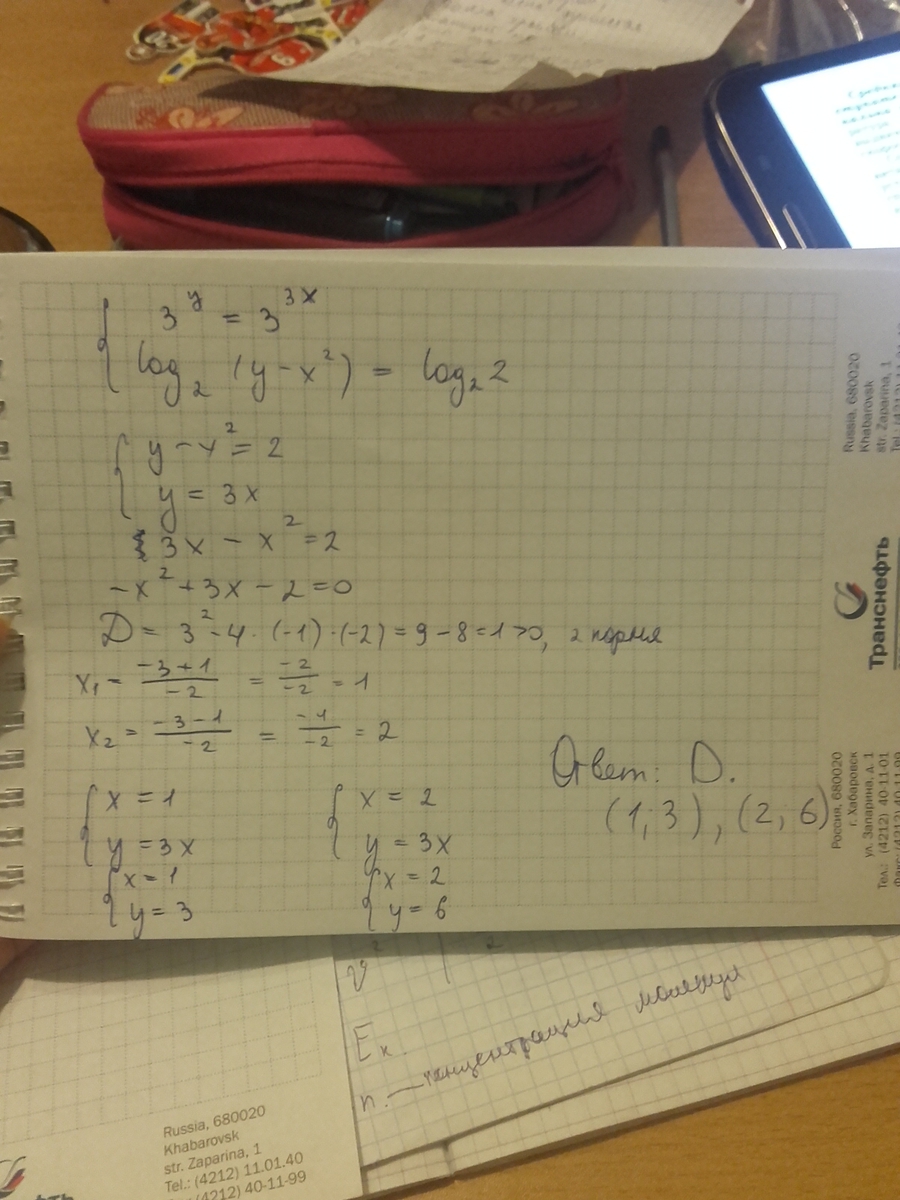 { 3^y = 3^{3x}
log₂ (y - x²) = log₂ 2
{ y - x² = 2
y = 3x
3x - x² = 2
-x² + 3x - 2 = 0
D = 3² - 4 · (-1) · (-2) = 9 - 8 = 1 > 0, 2 корня
x₁ = (-3+1)/(-2) = (-2)/(-2) = 1
x₂ = (-3-1)/(-2) = (-4)/(-2) = 2
Ответ: D.
(1; 3), (2, 6)
{ x = 1
y = 3x
{ x = 2
y = 3x
{ x = 1
y = 3
{ x = 2
y = 6
Russia, 680020
Khabarovsk
str. Zaparina, 1
Транснефть
Россия, 680020
г. Хабаровск
ул. Запарина, д. 1
Тел.: (4212) 40-11-01
v² 2
Eк.
n. — концентрация молекул
Russia, 680020
Khabarovsk
str. Zaparina, 1
Tel.: (4212) 11.01.40
(4212) 40-11-99